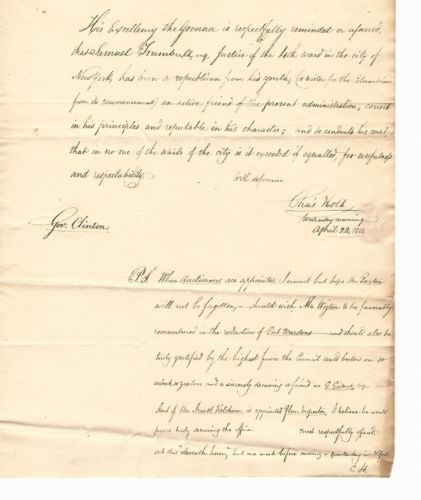 His Excellency the Governor is respectfully reminded or
that Samuel Trumbull, esq. Justice of the 10th ward in the city of
New York, has been a republican from his youth; (a writer for the Columbian
from its commencement, an active friend of the present administration, correct
in his principles and reputable in his character; and so conducts his court,
that in no one of the wards of the city is it excelled if equalled for usefulness
and respectability.
With deference
Chas Holt
Wednesday morning
April 22, 18
Gov. Clinton.
P.S. When Auctioneers are appointed, I cannot but hope Mr
will not be forgotten, — should wish Mr to be favorably
remembered in the reduction of Port Wardens — and should also be
truly gratified by the highest favor the Council could bestow on so
a republican and a sincerely deserving a friend as G. esq
And if Mr Ketchum is appointed Flour Inspector, I believe he would
prove truly deserving the office. most respectfully
at this "eleventh hour," but one week before moving
C. H.